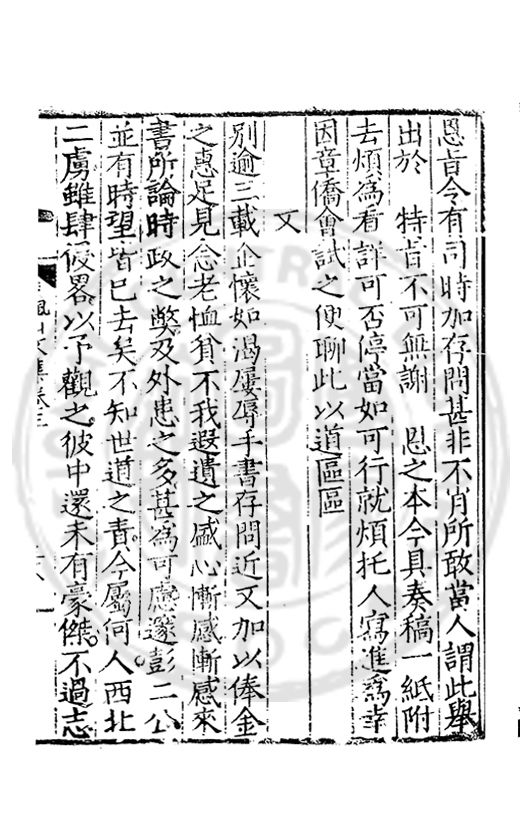 恩旨今有司時加存問甚非不肖所敢當人謂此舉
出於　特旨不可無謝　恩之本今具奏稿一紙附
去煩為看詳可否停當如可行就煩托人寫進為幸
因章僑會試之便聊此以道區區
又
別逾三載企懷如渴屢辱手書存問近又加以俸金
之惠足見念老恤貧不我遐遺之感心慚感慚感來
書所論時政之弊及外患之多甚為可慮邃彭二公
並有時望皆已去矣不知世道之責今屬何人西北
二虜雖肆侵畧以予觀之彼中還未有豪傑不過志
楓山文集卷三